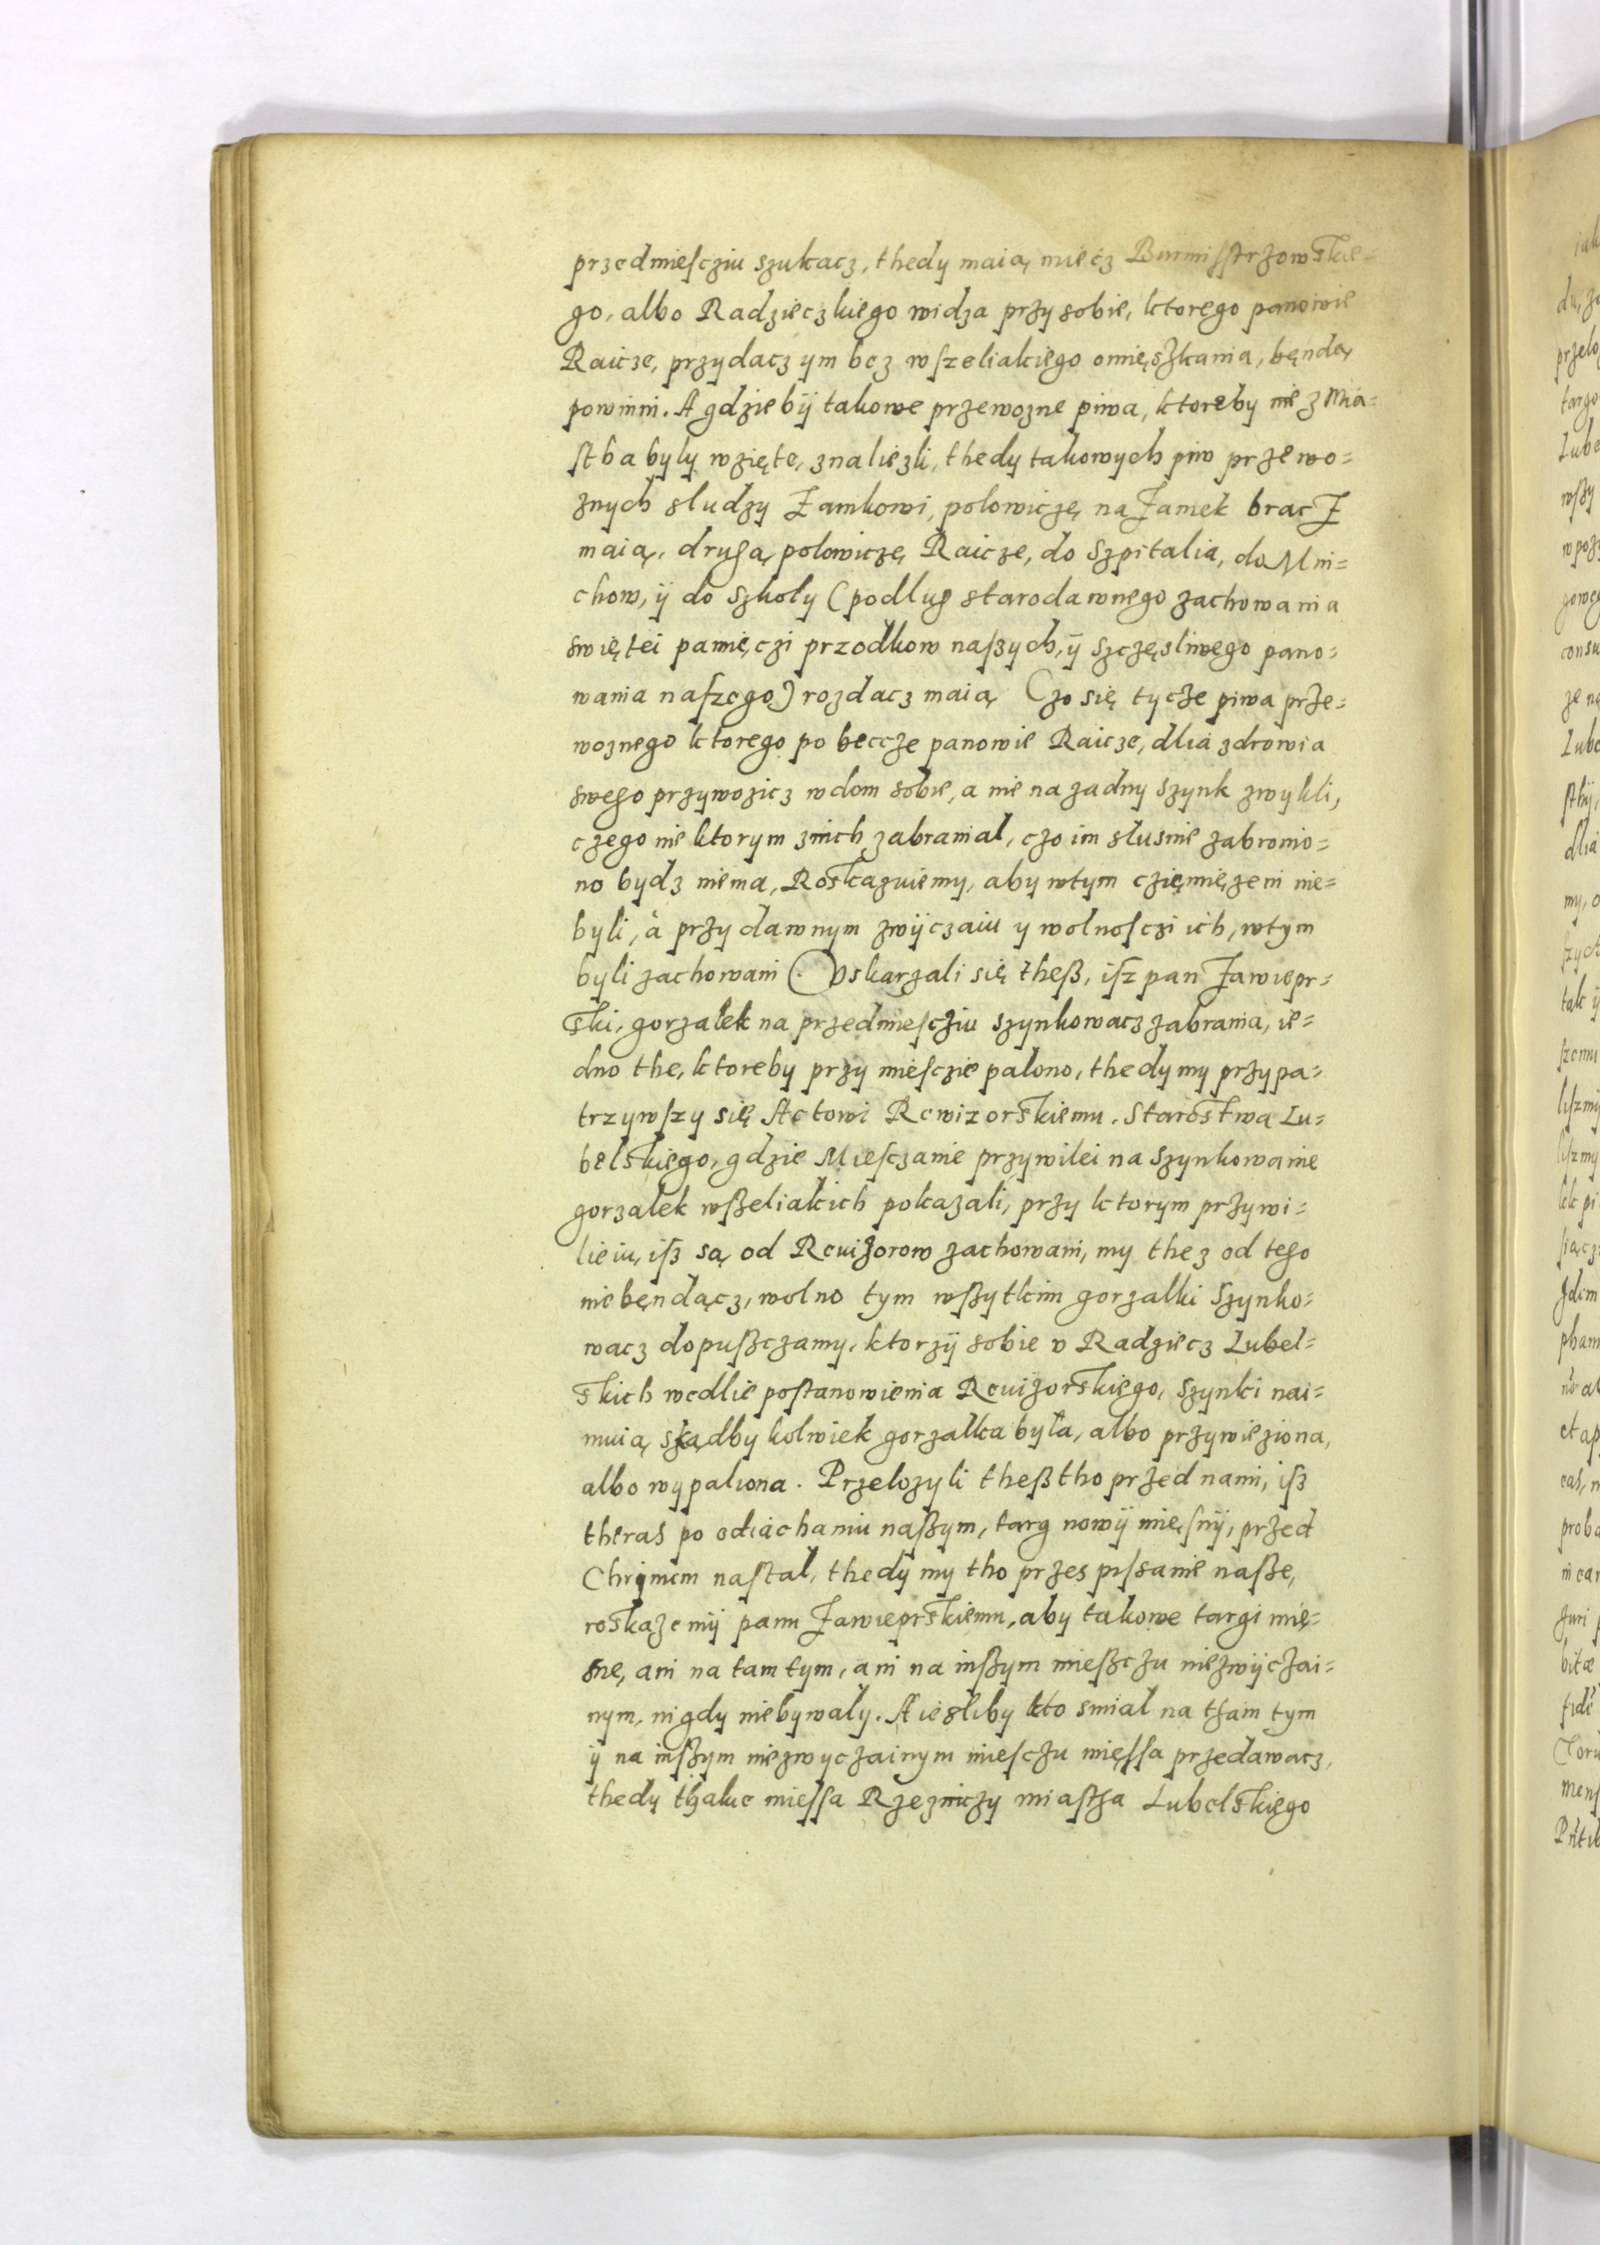 przedmiesćziu szukacz, thedy maią miecz Burmiſstrzowskie=
go, albo Radzieczkiego widza przy sobie, ktorego panowie
Raicze, przydacz ym bez wſzeliakiego omięszkania, będą
powinni. A gdzie bÿ takowe przewozne piwa, ktoreby nie z Mia=
ſtba byly wzięte, znaliezli, thedy takowych piw przewo=
znych sludzy Zamkowi, polowiczę na Zamek bracz
maią, drugą polowiczę Raicze, do Szpitalia, do Mni=
chow, ÿ do szkoly (podlug starodawnego zachowania
swiętei pamięczi przodkow naſzych, ÿ szczęsliwego pano=
wania naſzego) rozdacz maią Czo się tycze piwa prze=
woznego ktorego po beczcze panowie Raicze, dlia zdrowia
swego przywozicz w dom sobie, a nie na zadny szynk zwykli,
czego niektorym znich zabranial, czo im slusnie zabronio=
no bydz niema, Roskazuiemy, aby wtym cziemięzeni nie=
byli, à przy dawnym zwÿczaiu y wolnoſczi ich, wtym
byli zachowani. Vskarzali się theß, iſz pan Zawiepr=
ski, gorzalek na przedmieſcziu szynkowacz zabrania, ie=
dno the, ktoreby przy mieſczie palono, thedy my przypa=
trzywſzy się Actowi Rewizorskiemu, Starostwa Lu=
belskiego, gdzie Mieſczanie przywilei na szynkowanie
gorzalek wßeliakich pokazali, przy ktorym przywi=
lieiu, iſz są od Reuizorow zachowani, my thez od tego
nie będącz, wolno tym wßytkim gorzalki szynko=
wacz dopußczamy, ktorzÿ sobie v Radziecz Lubel=
skich wedlie poſtanowienia Reuizorskiego, szynki nai=
muią skądby kolwiek gorzalka była, albo przywieziona,
albo wypaliona. Przelozyli theß tho przed nami, iſz
theras po odiachaniu naßym, targ nowÿ mięſnÿ, przed
Chrÿmem naſtal, thedy my tho przes piſsanie naße,
roskazemÿ panu Zawieprskiemu, aby takowe targi mię=
sne, ani na tam tym, ani na inßym mießczu niezwÿczai=
nym, nigdy niebywaly. A iesliby kto smial na tham tym
ÿ na inßym niezwyczainym mieſczu mięſsa przedawacz,
thedy thakie mieſsa Rzezniczy miaſtha Lubelskiego